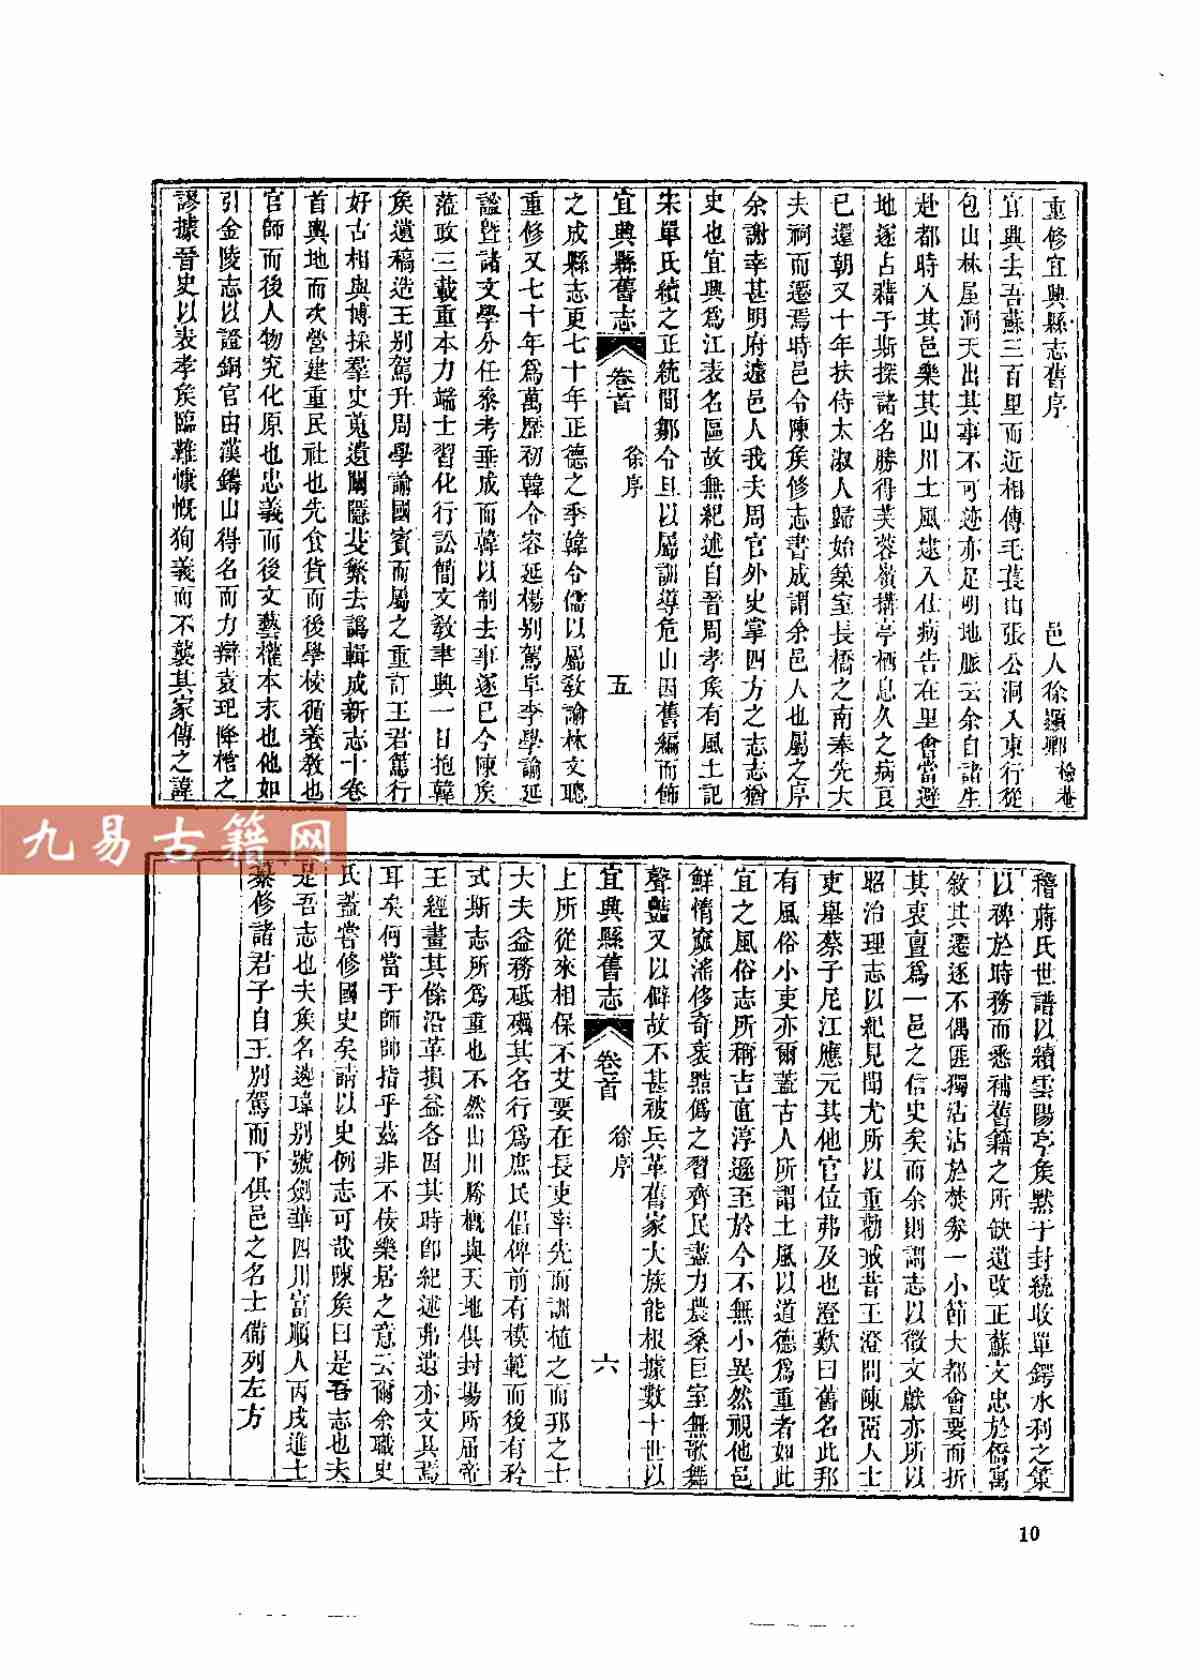 重修宜興縣志舊序 邑人徐顯卿檢菴
宜興去吾蘇三百里而近相傳毛萇由張公洞入東行從
包山林屋洞天出其事不可迹亦足明地脈云余自諸生
赴都時入其邑樂其山川土風逮入仕病告在里會當避
地遂占藉于斯探諸名勝得芙蓉嶺構亭栖息久之病良
已還朝又十年扶侍太淑人歸始築室長橋之南奉先大
夫祠而遷焉時邑令陳矦修志書成謂余邑人也屬之序
余謝幸甚明府遠邑人我夫周官外史掌四方之志志猶
史也宜興爲江表名區故無紀述自晉周孝矦有風土記
宋單氏續之正統間鄒令旦以屬訓導危山因舊編而飾
宜興縣舊志 卷首 徐序 五
之成縣志更七十年正德之季韓令儒以屬敎諭林文聰
重修又七十年爲萬歷初韓令容延楊別駕阜李學諭延
諡曁諸文學分任叅考垂成而韓以制去事遂已今陳矦
蒞政三載重本力嗇士習化行訟簡文敎聿興一日抱韓
矦遺稿造王别駕升周學諭國賓而屬之重訂王君篤行
好古相與博採羣史蒐遺闡隱芟繁去譌輯成新志十卷
首輿地而次營建重民社也先食貨而後學校循養教也
官師而後人物究化原也忠義而後文藝權本末也他如
引金陵志以證銅官由漢鑄山得名而力辯袁玘降棺之
謬據晉史以表孝矦臨難慷慨狥義而不襲其家傳之諱
稽蔣氏世譜以續雲陽亭矦默于封統收單鍔水利之策
以稗於時務而悉補舊籍之所缺遺改正蘇文忠於僑寓
敘其遷逐不偶匪獨沾沾於焚券一小節大都會要而折
其衷亶爲一邑之信史矣而余則謂志以徵文獻亦所以
昭治理志以紀見聞尤所以重勸戒昔王澄問陳畱人士
吏舉蔡子尼江應元其他官位弗及也澄歎曰舊名此邦
有風俗小吏亦爾蓋古人所謂土風以道德爲重者如此
宜之風俗志所稱吉直淳遜至於今不無小異然視他邑
鮮惰窳滛侈奇衺黠僞之習齊民盡力農桑巨室無歌舞
聲豔又以僻故不甚被兵革舊家大族能根據數十世以
宜興縣舊志 卷首 徐序 六
上所從來相保不艾要在長吏率先而訓植之而邦之士
大夫益務砥礪其名行爲庶民倡俾前有模範而後有矜
式斯志所爲重也不然山川勝概與天地俱封場所屆帝
王經畫其餘沿革損益各因其時卽紀述弗遺亦文具焉
耳矣何當于師師指乎茲非不佞樂居之意云爾余職史
氏蓋嘗修國史矣請以史例志可哉陳矦曰是吾志也夫
是吾志也夫矦名遴瑋别號劍華四川富順人丙戌進士
纂修諸君子自王別駕而下俱邑之名士備列左方
九易古籍网
10